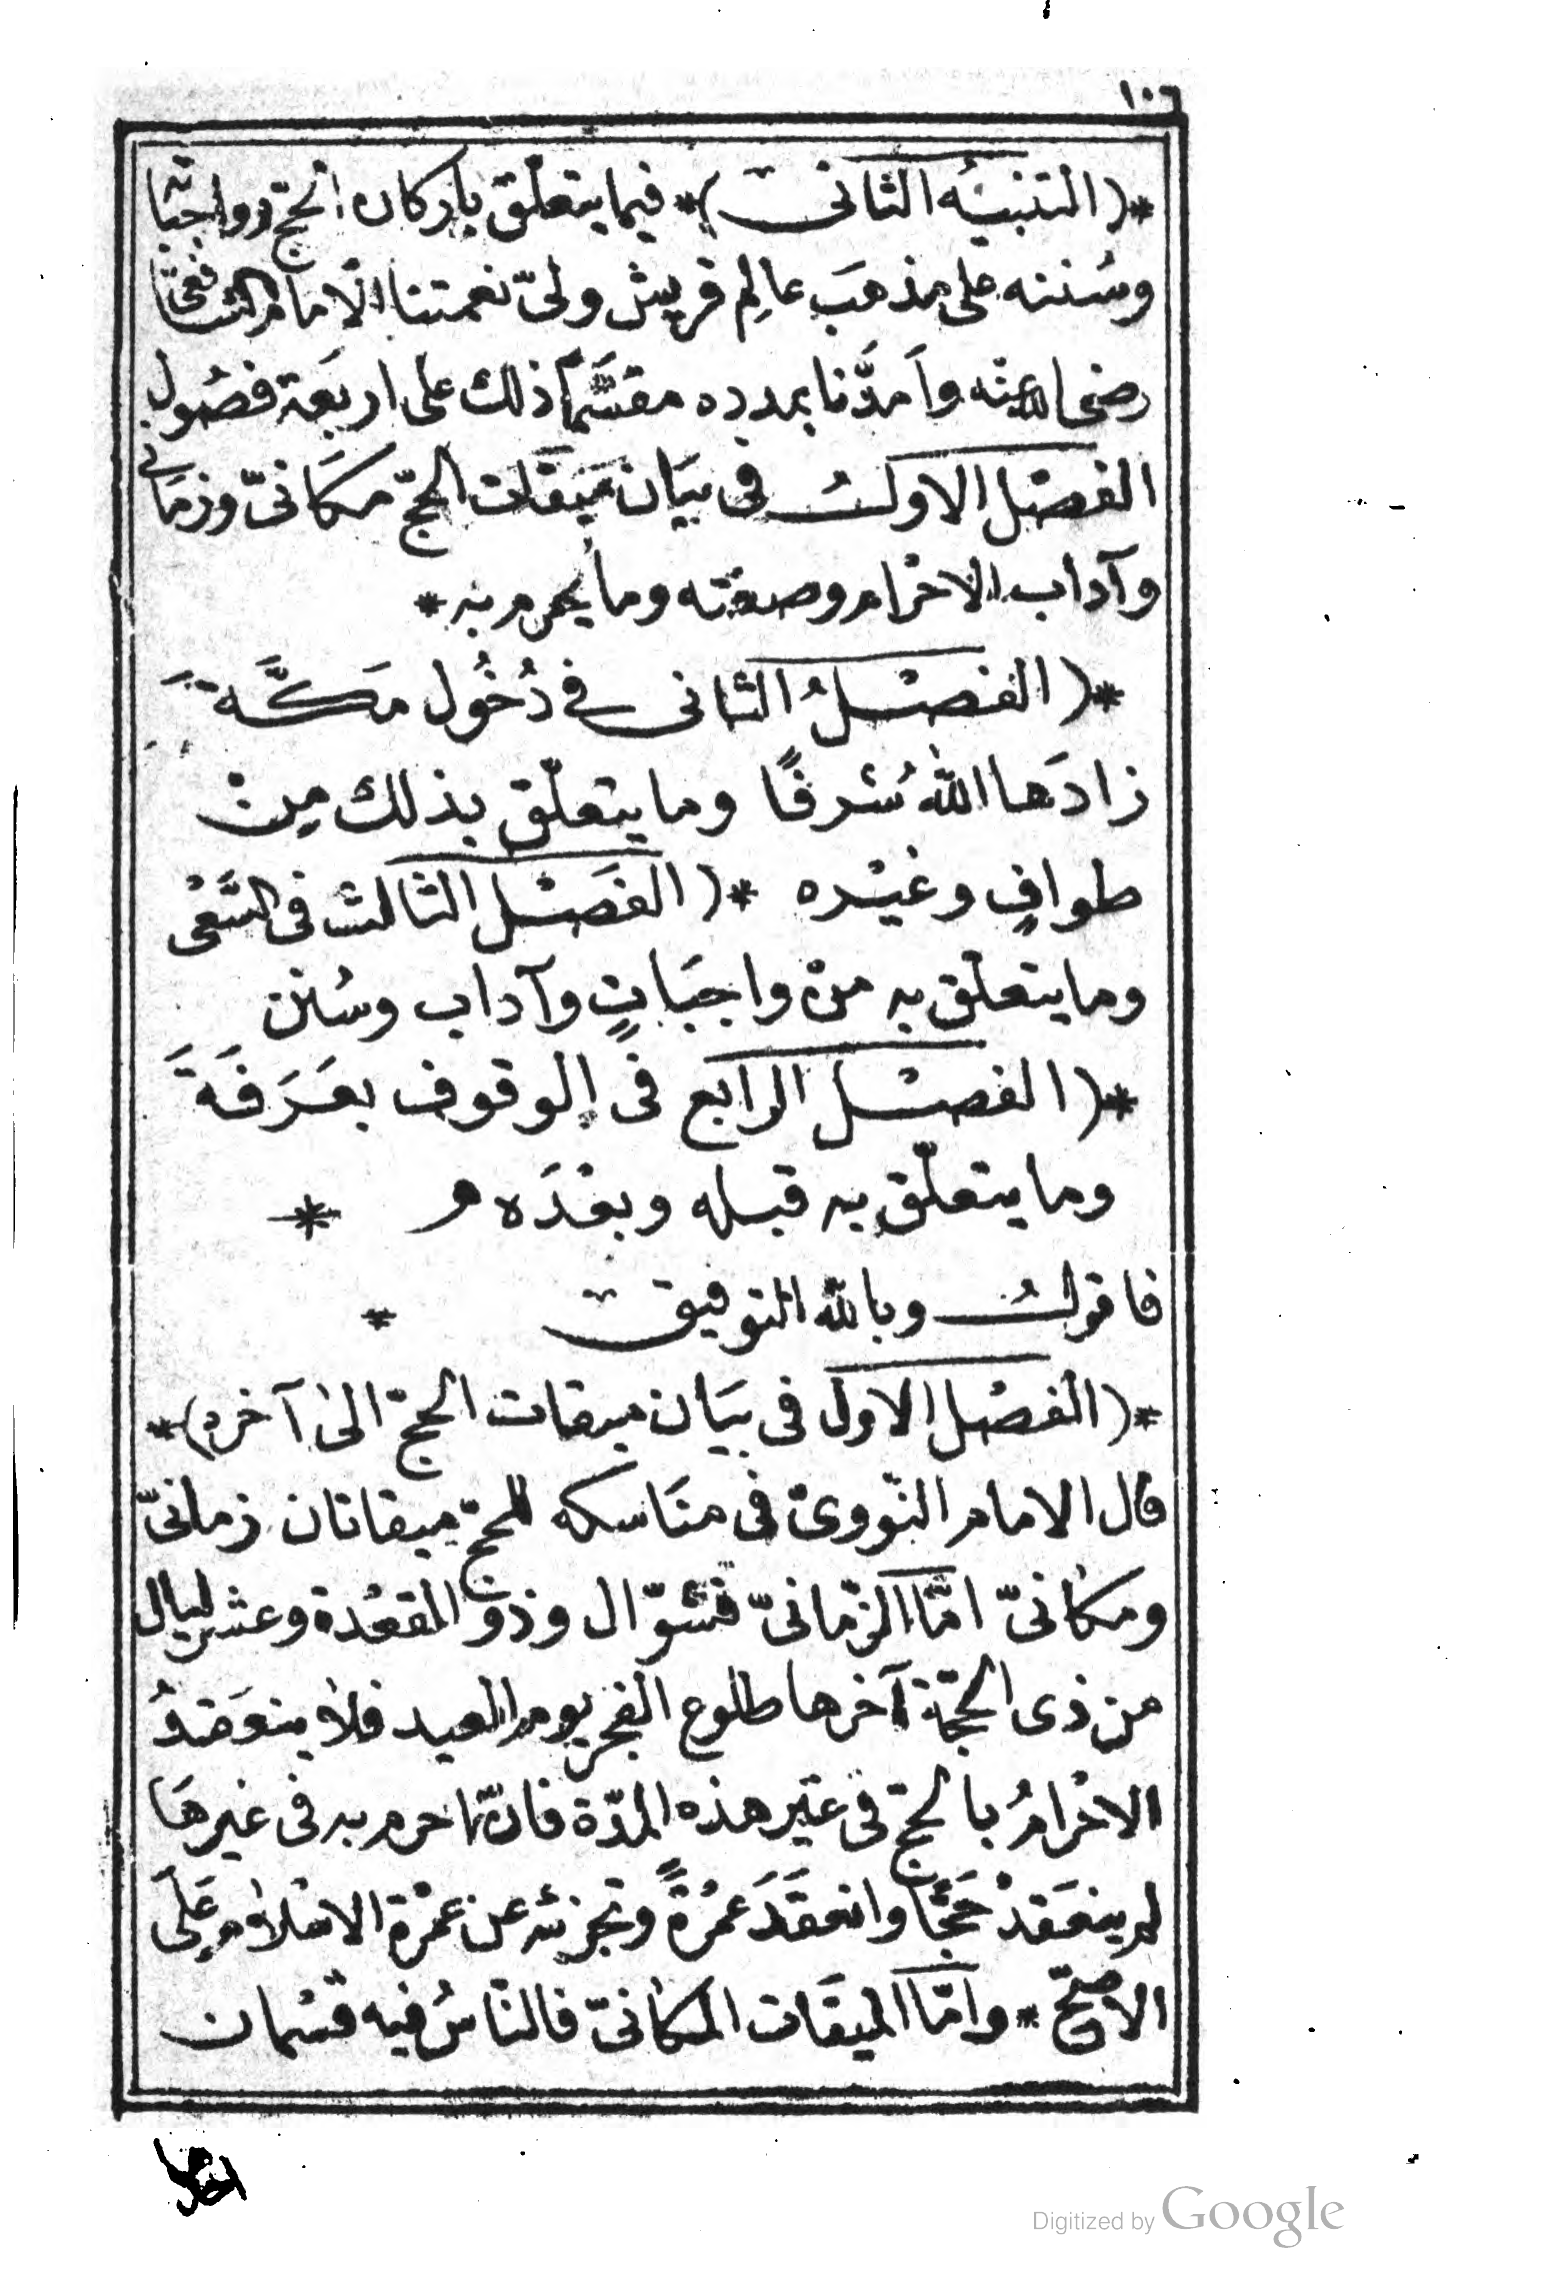 ١٠٦
*(التنبيْه الثانى)* فيما يتعلّق باركان الحجّ وواجباته
وسُننه على مذهبَ عالِم قريش ولىّ نعمتنا الامام الشافعىّ
رضى الله عنه وامَدَّنا بمدده مقسَّمًا ذلك على اربَعَة فصُول
الفصْل الاولُ فى بيَان ميَقات الحجّ مكَانىّ وزمَانى
وآداب الاحْرام وصفته وما يحرم به *
*(الفصْلُ الثانى فى دُخُول مَكَّةَ
زادَها اللهُ شرفًا وما يتعلّق بذلك مِنْ
طوافٍ وغيْره *(الفَصْل الثالث فى السَّعْى
وما يتعلّق به منْ واجبَاتٍ وآداب وسُنن
*(الفصْل الرابع فى الوقوف بعَرَفَةَ
وما يتعلّق به قبله وبعْدَه م *
فاقولُ وبالله التوفيق *
*(الفصْل الاول فى بيَان ميقات الحجّ الى آخره)*
قال الامام النّووىّ فى منَاسكه للحجّ ميقاتان زمانىّ
ومكانىّ امّا الزّمانىّ فشوّال وذو القعْدة وعشر ليال
من ذى الحجّة آخرها طلوع الفجر يوم العيد فلا ينعَقدُ
الاحْرامُ بالحجّ فى غيْر هذه المدّة فان احرم به فى غيرهَا
لم ينعَقدْ حَجًّا وانعقَدَ عمُرةً وتجزئه عن عمْرة الاسْلام عَلَى
الاصحّ * وامّا الميقَات المكانىّ فالناسُ فيه قسْمان
احدهما
Digitized by Google